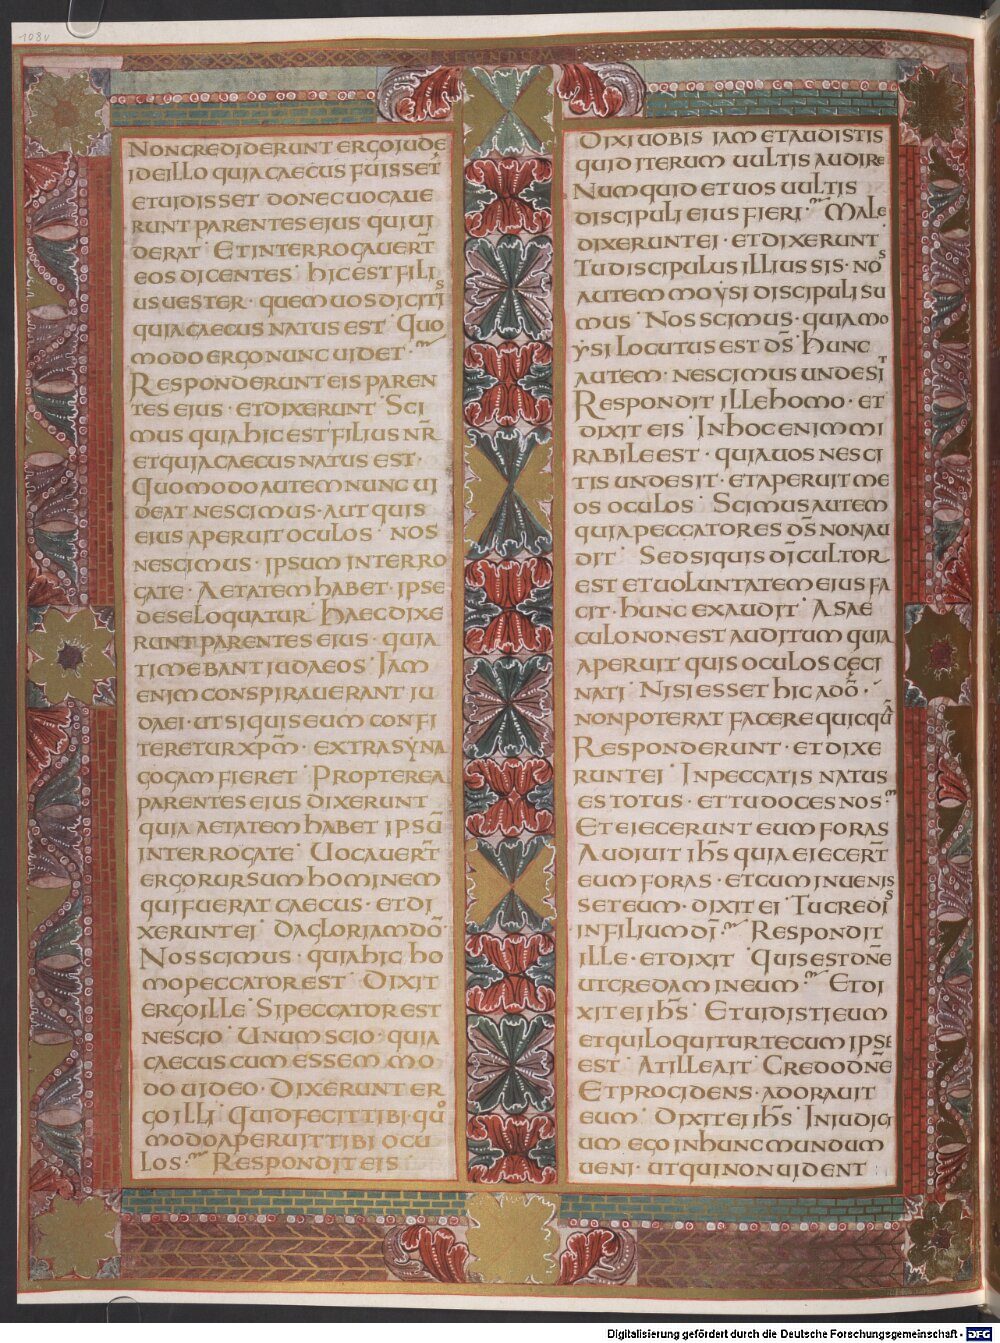 108v
SECUNDUM
NON CREDIDERUNT ERGO IUDE
I DE ILLO QUIA CAECUS FUISSET
ET UIDISSET DONEC UOCAUE
RUNT PARENTES EIUS QUI UI
DERAT · ET INTERROGAUERT̄
EOS DICENTES · HIC EST FILI
US UESTER · QUEM UOS DICITIS
QUIA CAECUS NATUS EST · QUO
MODO ERGO NUNC UIDET ·
RESPONDERUNT EIS PAREN
TES EIUS · ET DIXERUNT · SCI
MUS QUIA HIC EST FILIUS NR̄
ET QUIA CAECUS NATUS EST ·
QUOMODO AUTEM NUNC UI
DEAT NESCIMUS · AUT QUIS
EIUS APERUIT OCULOS · NOS
NESCIMUS · IPSUM INTERRO
GATE · AETATEM HABET · IPSE
DE SE LOQUATUR · HAEC DIXE
RUNT PARENTES EIUS · QUIA
TIMEBANT IUDAEOS · IAM
ENIM CONSPIRAUERANT IU
DAEI · UT SI QUIS EUM CONFI
TERETUR XP̄M · EXTRA SYNA
GOGAM FIERET · PROPTEREA
PARENTES EIUS DIXERUNT
QUIA AETATEM HABET IPSŪ
INTERROGATE · UOCAUERT̄
ERGO RURSUM HOMINEM
QUI FUERAT CAECUS · ET DI
XERUNT EI · DA GLORIAM DŌ ·
NOS SCIMUS · QUIA HIC HO
MO PECCATOR EST · DIXIT
ERGO ILLE · SI PECCATOR EST
NESCIO · UNUM SCIO · QUIA
CAECUS CUM ESSEM MO
DO UIDEO · DIXERUNT ER
GO ILLI · QUID FECIT TIBI · QUO
MODO APERUIT TIBI OCU
LOS · RESPONDIT EIS
DIXI UOBIS IAM ET AUDISTIS
QUID ITERUM UULTIS AUDIRE
NUMQUID ET UOS UULTIS
DISCIPULI EIUS FIERI · MALE
DIXERUNT EI · ET DIXERUNT ·
TU DISCIPULUS ILLIUS SIS · NOS
AUTEM MOYSI DISCIPULI SU
MUS · NOS SCIMUS · QUIA MO
YSI LOCUTUS EST DS̄ · HUNC
AUTEM · NESCIMUS UNDE SIT
RESPONDIT ILLE HOMO · ET
DIXIT EIS · IN HOC ENIM MI
RABILE EST · QUIA UOS NESCI
TIS UNDE SIT · ET APERUIT ME
OS OCULOS · SCIMUS AUTEM
QUIA PECCATORES DS̄ NON AU
DIT · SED SI QUIS DĪ CULTOR
EST ET UOLUNTATEM EIUS FA
CIT · HUNC EXAUDIT · A SAE
CULO NON EST AUDITUM QUIA
APERUIT QUIS OCULOS CĘCI
NATI · NISI ESSET HIC A DŌ ·
NON POTERAT FACERE QUICQUĀ
RESPONDERUNT · ET DIXE
RUNT EI · IN PECCATIS NATUS
ES TOTUS · ET TU DOCES NOS ·
ET EIECERUNT EUM FORAS
AUDIUIT IHS̄ QUIA EIECERT̄
EUM FORAS · ET CUM INUENIS
SET EUM · DIXIT EI · TU CREDIS
IN FILIUM DĪ · RESPONDIT
ILLE · ET DIXIT · QUIS EST DN̄E
UT CREDAM IN EUM · ET DI
XIT EI IHS̄ · ET UIDISTI EUM
ET QUI LOQUITUR TECUM IPSE
EST · AT ILLE AIT · CREDO DN̄E
ET PROCIDENS · ADORAUIT
EUM · DIXIT EI IHS̄ · IN IUDICI
UM EGO IN HUNC MUNDUM
UENI · UT QUI NON UIDENT
Digitalisierung gefördert durch die Deutsche Forschungsgemeinschaft - DFG